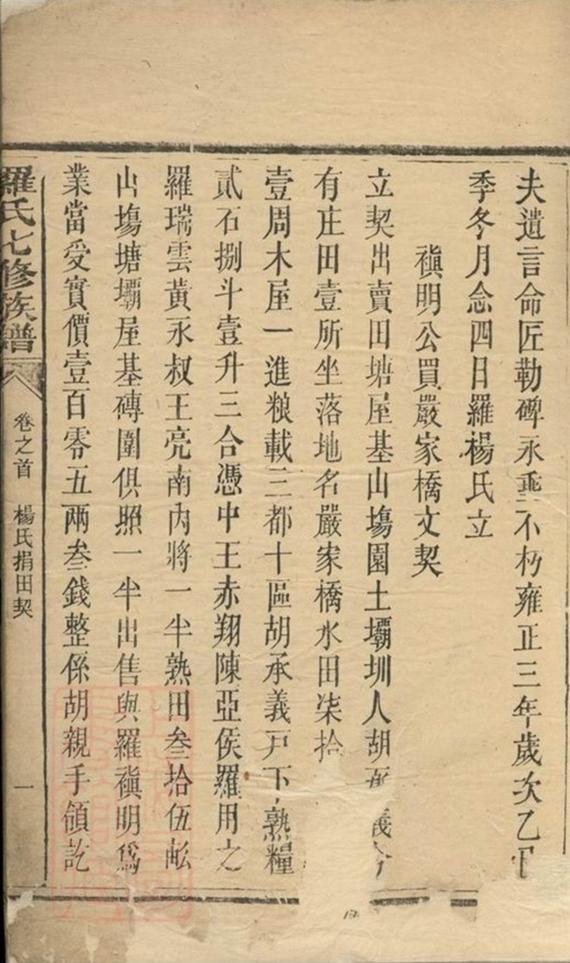 夫遺言命匠勒碑永垂不朽雍正三年歲次乙
季冬月念四日羅楊氏立
禛明公買嚴家橋文契
立契出賣田塘屋基山塲園土壩圳人胡
有庄田壹所坐落地名嚴家橋水田柒拾
壹周木屋一進粮載三都十區胡承義戸下熟糧
貳石捌斗壹升三合憑中王赤翔陳亞侯羅用之
羅瑞雲黃永叔王亮南內將一半熟田叁拾伍畝
山塲塘壩屋基磚圍俱照一半出售與羅禛明爲
業當受實價壹百零五兩叁錢整係胡親手領訖
羅氏七修族譜
卷之首 楊氏捐田契 一